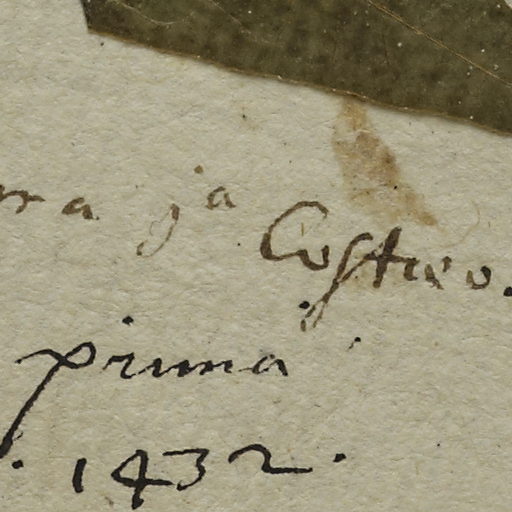 ra ja Costeo.
prima
. 1432 .